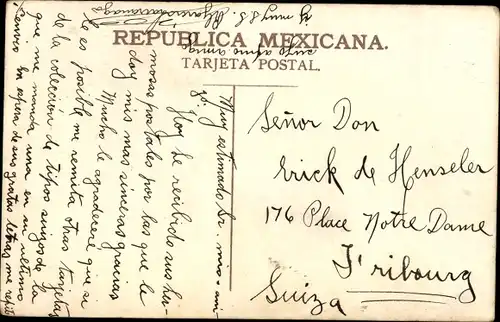 REPUBLICA MEXICANA.
TARJETA POSTAL.
Muy estimado Sr. mio y ami-
go.
Hoy he recibido sus her-
mosas postales por las que le
doy mis mas sinceras gracias
Mucho le agradeceré que si
le es posible me remita otras tarjetas
de la colección de tipos suizos de la
que me manda una en su ultimo
envio. En espera de sus gratas letras me repito
suyo afmo amigo
y muy S.S.
Señor Don
Erick de Henseler
176 Place Notre Dame
Fribourg
Suiza